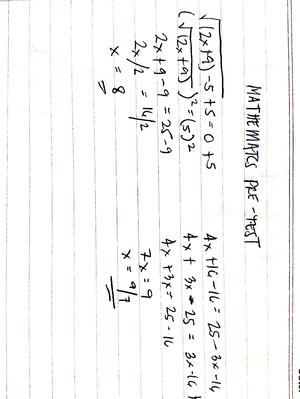 MATHEMATCS PRE-TEST
√(2x+9) -5+5 = 0 +5
(√(2x+9))² = (5)²
2x+9-9 = 25-9
2x/2 = 16/2
x = 8
4x+16-16 = 25-3x-16
4x + 3x = 25 = 3x-16
4x+3x = 25-16
7x = 9
x = 9/7